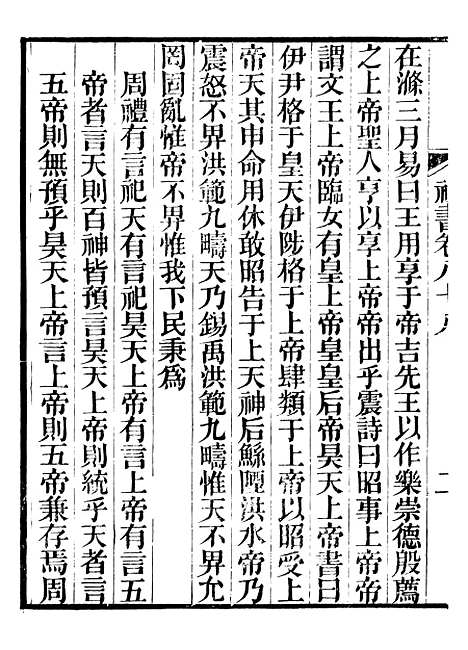 禮書卷八十九
二
在滌三月易曰王用享于帝吉先王以作樂崇德殷薦
之上帝聖人亨以享上帝帝出乎震詩曰昭事上帝帝
謂文王上帝臨女有皇上帝皇皇后帝昊天上帝書曰
伊尹格于皇天伊陟格于上帝肆類于上帝以昭受上
帝天其申命用休敢昭告于上天神后鯀陻洪水帝乃
震怒不畀洪範九疇天乃錫禹洪範九疇惟天不畀允
罔固亂惟帝不畀惟我下民秉爲
周禮有言祀天有言祀昊天上帝有言上帝有言五
帝者言天則百神皆預言昊天上帝則統乎天者言
五帝則無預乎昊天上帝言上帝則五帝兼存焉周